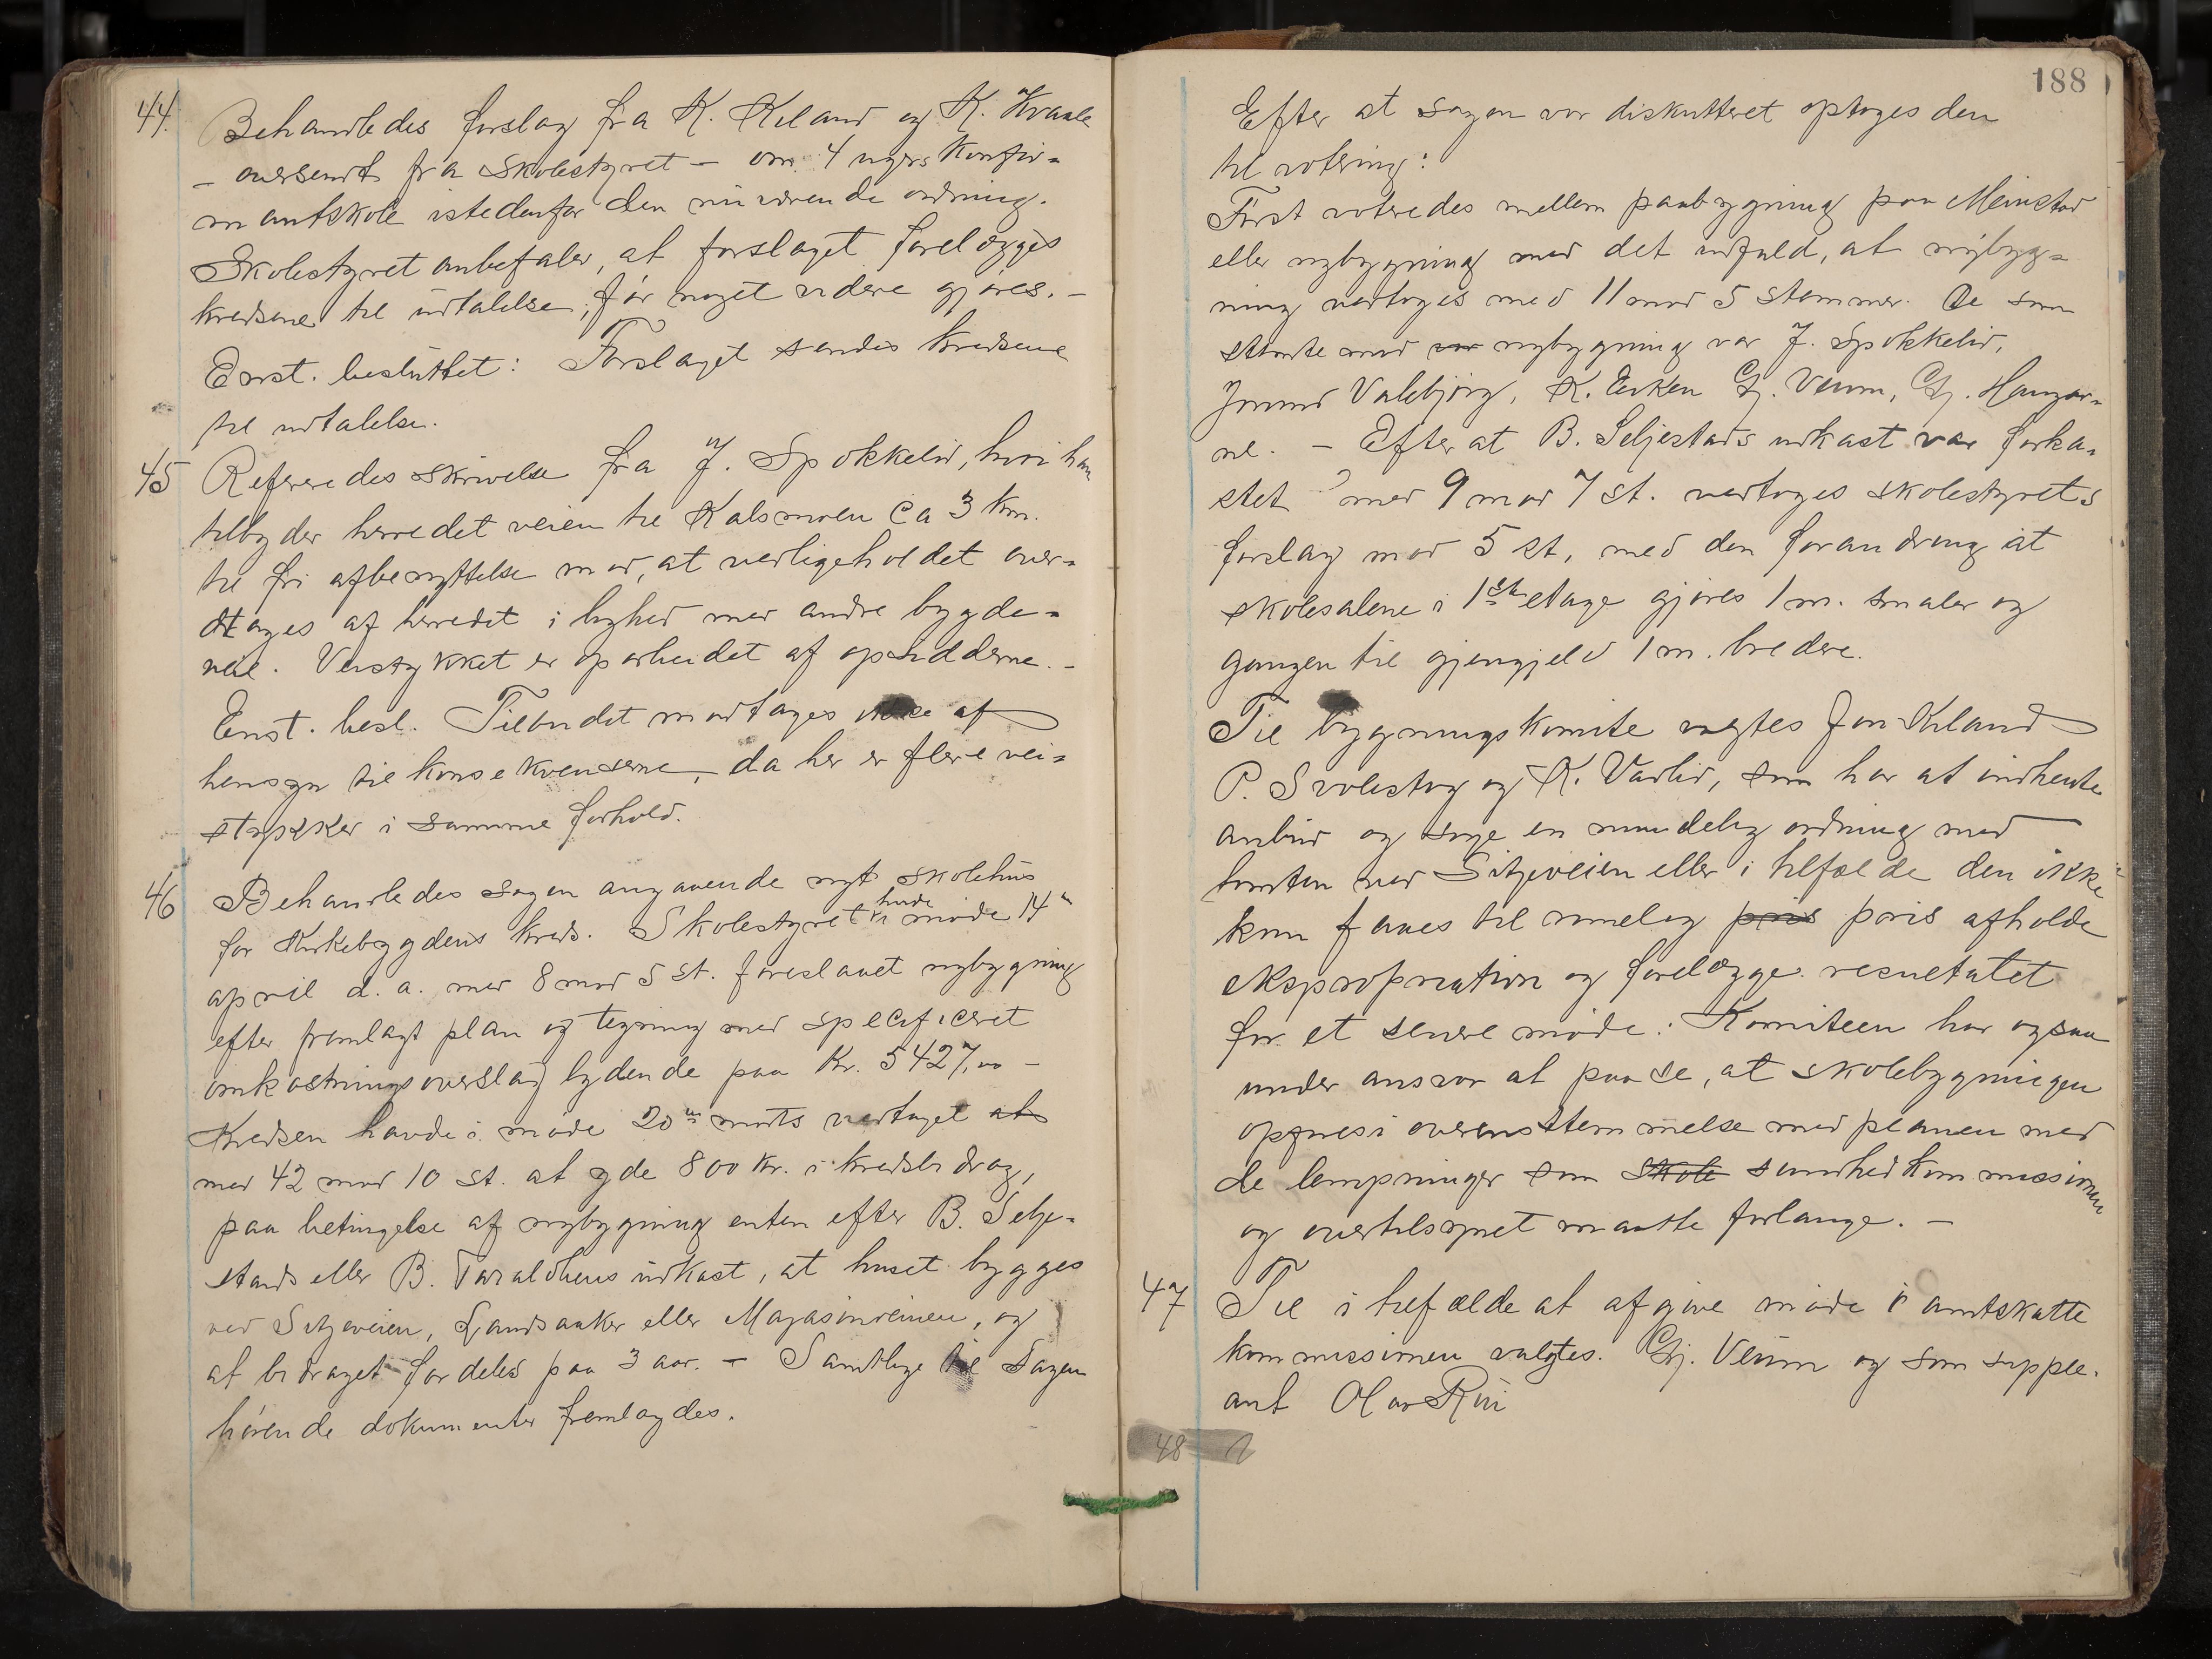 44. Behandledes forslag fra K. Kiland og K. Kvaale
- oversendt fra skolestyret - om 4 ugers konfir-
mantskole istedenfor den nuværende ordning.
Skolestyret anbefaler, at forslaget forelægges
kredsene til udtalelse, før noget videre gjøres. -
Enst. besluttet: Forslaget sendes kredsene
til udtalelse.
45 Refereredes skrivelse fra J. Spokkelid, hvori han
tilbyder herredet veien til Kalsmoen ca 3 km.
til fri afbenyttelse mod, at vedligeholdet over-
tages af herredet i lighed med andre bygde-
veie. Veistykket er oparbeidet af opsidderne. -
Enst. besl. Tilbudet modtages ikke af
hensyn til konsekvenserne, da her er flere vei-
stykker i samme forhold.
46 Behandledes sagen angaaende nyt skolehus
for Kirkebygdens kreds. Skolestyret havde i møde 14de
april d. a. med 8 mod 5 st. foreslaaet nybygning
efter fremlagt plan og tegning med specificeret
omkostningsoverslag lydende paa Kr. 5427,00 -
Kredsen havde i møde 20de marts vedtaget at
med 42 mod 10 st. at yde 800 kr. i kredsbidrag,
paa betingelse af nybygning enten efter B. Selje-
stads eller B. Taraldliens udkast, at huset bygges
ved Sitjeveien, Landsanker eller Magasinreinen, og
at bidraget fordeles paa 3 aar. - Samtlige til sagen
hørende dokumenter fremlagdes.
188
Efter at sagen var diskutteret optoges den
til votering:
Først voteredes mellem paabygning paa Meinstad
eller nybygning med det udfald, at nybyg-
ning vedtoges med 11 mod 5 stemmer. De som
stemte mod var nybygning var J. Spokkelid,
Jmund Valebjørg, K. Eiken Gj. Veum, Gj. Haugar-
ne. - Efter at B. Seljestads udkast var forka-
stet med 9 mod 7 st. vedtoges skolestyrets
forslag mod 5 st, med den forandring at
skolesalene i 1ste etage gjøres 1 m. smaler og
gangen til gjengjeld 1 m. bredere.
Til bygningskomite valgtes Jon Kiland
P. Svolestog og K. Vaalid, som har at indhente
anbud og søge en mindelig ordning med
tomten ved Sitjeveien eller i tilfælde den ikke
kan faaes til rimelig pris pris afholde
ekspropriation og forelægge resultatet
for et senere møde. Komiteen har ogsaa
under ansvar at paase, at skolebygningen
opføres i overensstemmelse med planen med
de lempninger som skole sundhedkommissionen
og overtilsynet maatte forlange. -
47 Til i tilfælde at afgive møde i amtskatte
kommissionen valgtes. Gj. Veum og som supple-
ant Olav Rui
48